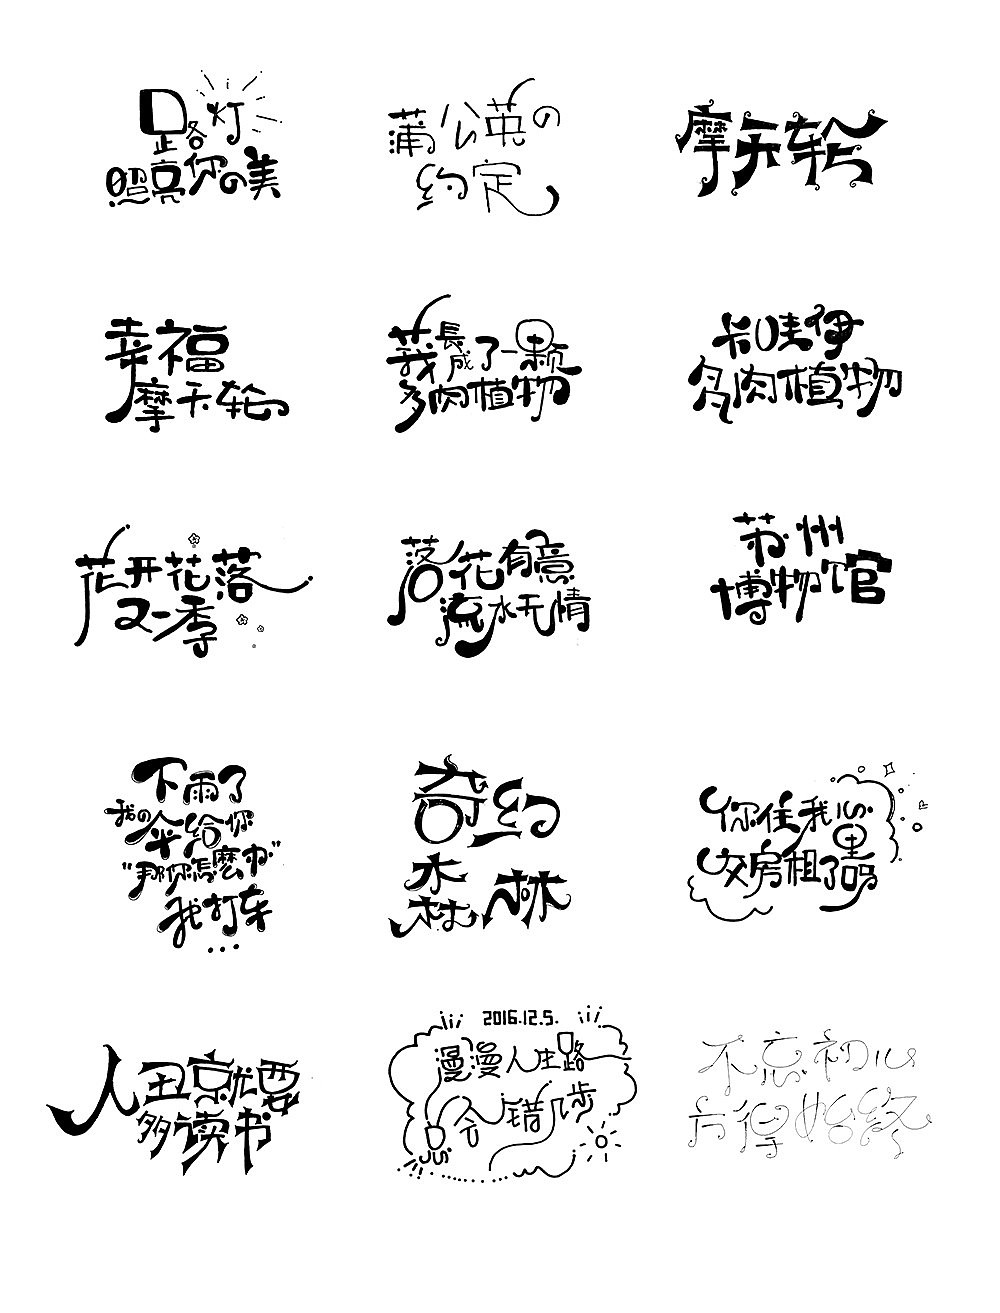 路灯
照亮你の美
蒲公英の
约定
摩天轮
幸福
摩天轮
我長成了一颗
多肉植物
卡哇伊
多肉植物
花开花落
又一季
落花有意
流水无情
苏州
博物馆
下雨了
我の伞给你
"那你怎么办"
我打车
...
奇约
森林
你住我心里
交房租了吗
人丑就要
多读书
2016.12.5.
漫漫人生路
总会错几步
不忘初心
方得始终